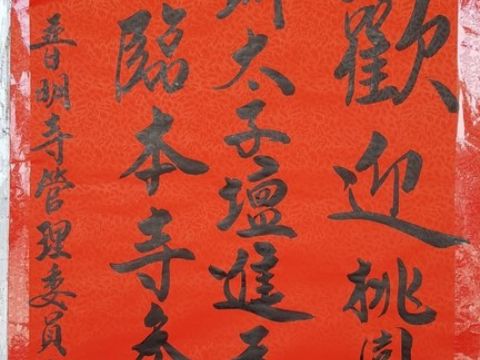 歡迎桃園
太子壇進
臨本寺參
普明寺管理委員